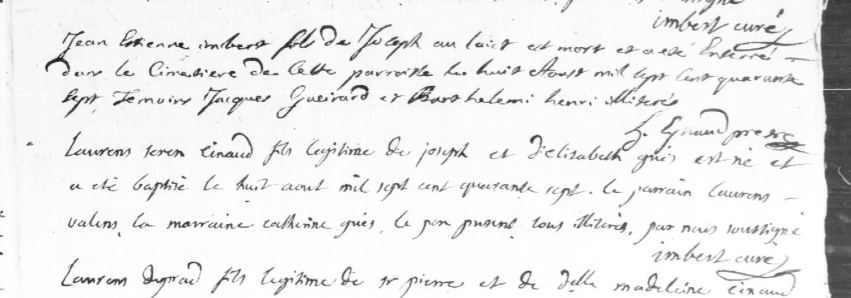 imbert curé
Jean Estienne imbert fils de Joseph au laict est mort et a eté Enterré
dans le Cimetiere de Cette parroisse le huit Aoust mil sept cent quarante
sept Temoins Jacques Gueirard et Barthelemi henri illiterés
Eynaud pretre
Laurens einaud fils legitime de joseph et d'elisabeth gués est né et
a eté baptisé le huit aout mil sept cent quarante sept. le parrain laurens
valens, la marraine catherine gués, le pere present tous illiterés, par nous soussigné
imbert curé
Laurens fils legitime de sr pierre et de delle madeleine einaud